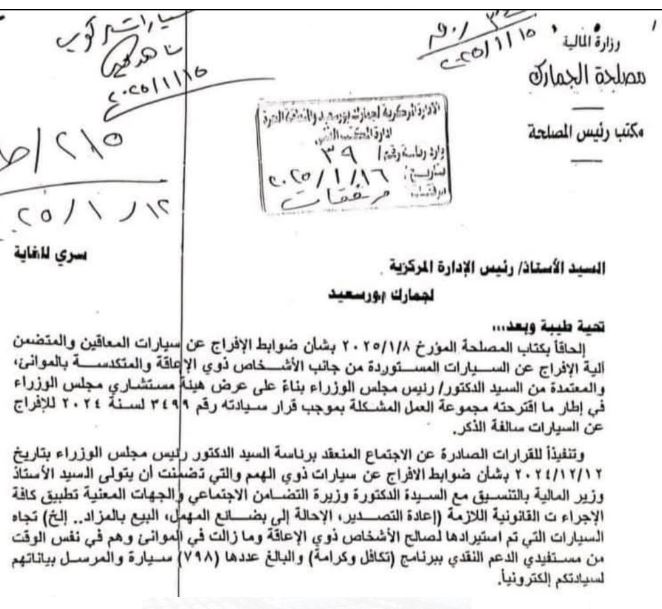 وزارة المالية
مصلحة الجمارك
مكتب رئيس المصلحة
سيارات ركوب
٢٠٢٥/١/١٥
٢٠٢٥/١/١٥
٢١٥/ط
٢٥/١/١٢
الإدارة المركزية لجمارك بورسعيد والمنطقة الحرة
ادارة المكتب الفنى
وارد رئاسة رقم / ٣٩
بتاريخ: ٢٠٢٥/١/١٦
مرفقات
سري للغاية
السيد الأستاذ/ رئيس الإدارة المركزية
لجمارك بورسعيد
تحية طيبة وبعد...
إلحاقاً بكتاب المصلحة المؤرخ ٢٠٢٥/١/٨ بشأن ضوابط الإفراج عن سيارات المعاقين والمتضمن
آلية الإفراج عن السيارات المستوردة من جانب الأشخاص ذوي الإعاقة والمتكدسة بالموانئ،
والمعتمدة من السيد الدكتور/ رئيس مجلس الوزراء بناءً على عرض هيئة مستشاري مجلس الوزراء
في إطار ما اقترحته مجموعة العمل المشكلة بموجب قرار سيادته رقم ٣٤٩٩ لسنة ٢٠٢٤ للإفراج
عن السيارات سالفة الذكر.
وتنفيذاً للقرارات الصادرة عن الاجتماع المنعقد برئاسة السيد الدكتور رئيس مجلس الوزراء بتاريخ
٢٠٢٤/١٢/١٢ بشأن ضوابط الافراج عن سيارات ذوي الهمم والتي تضمنت أن يتولى السيد الأستاذ
وزير المالية بالتنسيق مع السيدة الدكتورة وزيرة التضامن الاجتماعي والجهات المعنية تطبيق كافة
الإجراء ت القانونية اللازمة (إعادة التصدير، الإحالة إلى بضائع المهمل، البيع بالمزاد.. إلخ) تجاه
السيارات التي تم استيرادها لصالح الأشخاص ذوي الإعاقة وما زالت في الموانئ وهم في نفس الوقت
من مستفيدي الدعم النقدي ببرنامج (تكافل وكرامة) والبالغ عددها (٧٩٨) سيارة والمرسل بياناتهم
لسيادتكم إلكترونياً.